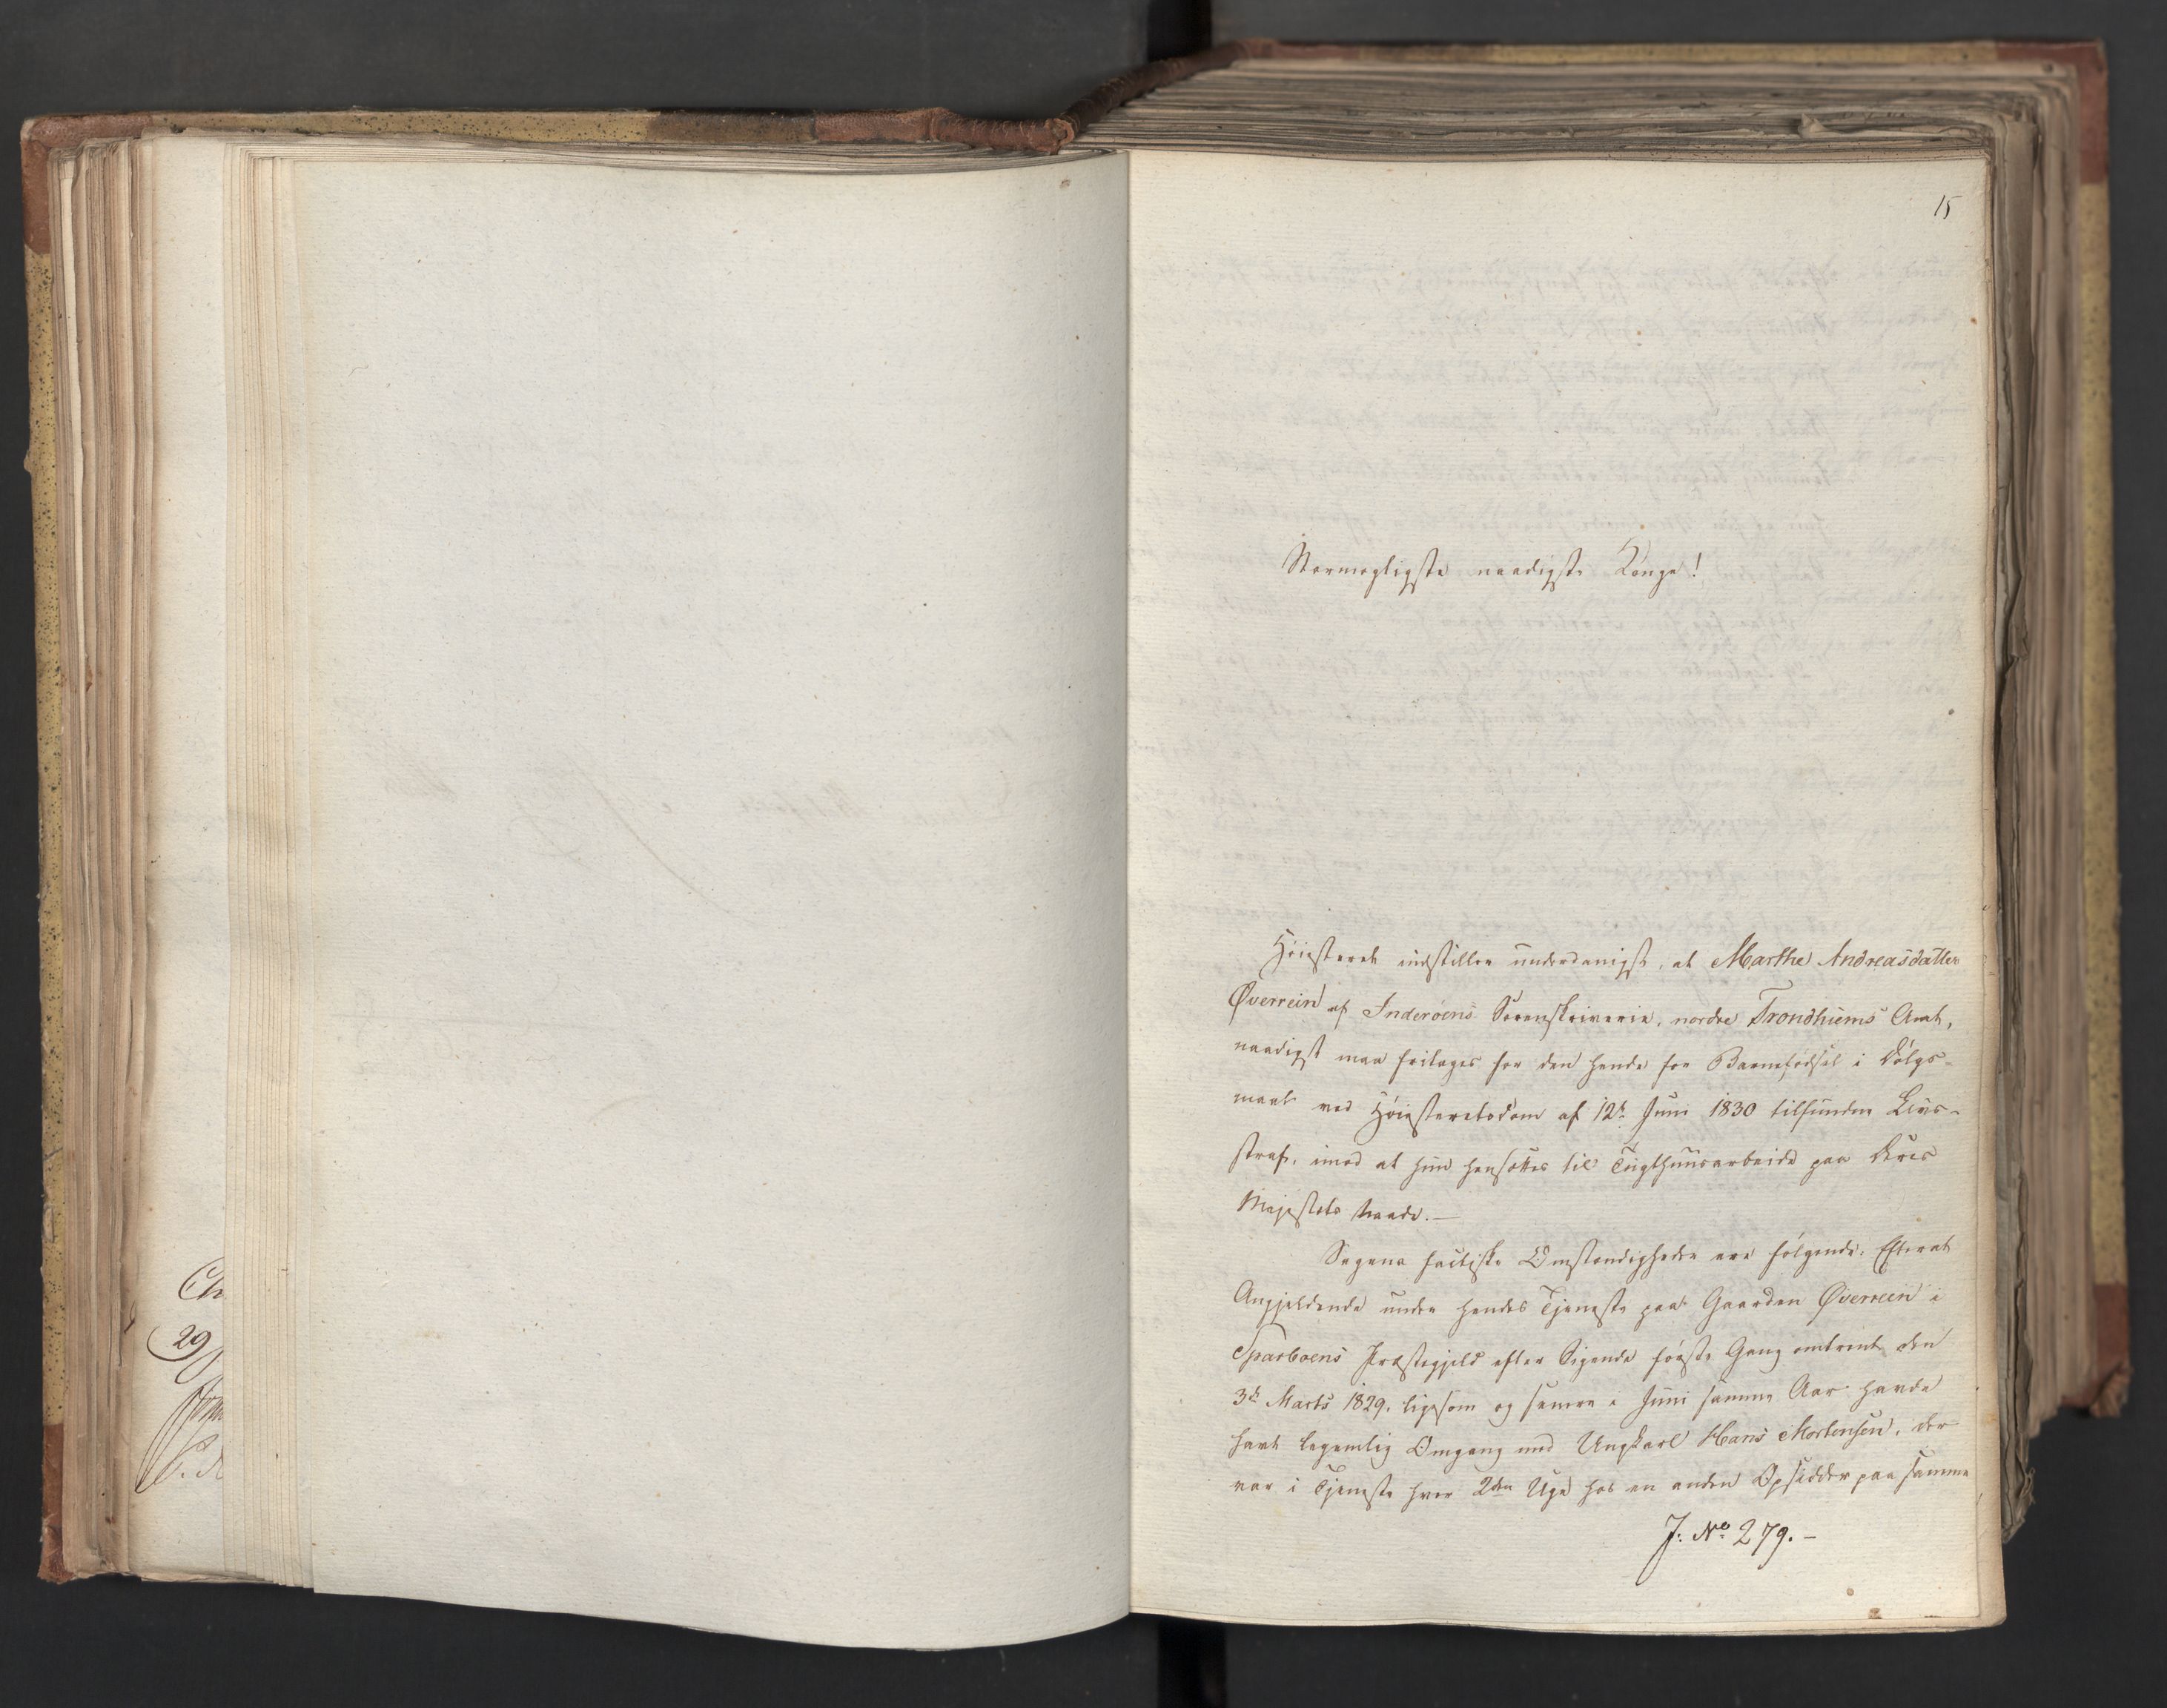 15
Stormægtigste naadigste Konge!
Høiesteret indstiller underdanigst, at Marthe Andreasdatter
Øverrein af Inderøens Sorenskriverie, nordre Trondhiems Amt,
naadigst maa fritages for den hende for Barnefødsel i Dølgs-
maal ved Høiesteretsdom af 12te Juni 1830 tilfundne Livs-
straf, imod at hun hensættes til Tugthuusarbeide paa Deres
Majestæts Naade.—
Sagens factiske Omstændigheder ere følgende: Efterat
Angjeldende under hendes Tjeneste paa Gaarden Øverrein i
Sparboens Præstegjeld efter Sigende første Gang omtrent den
3de Marts 1829, ligesom og senere i Juni samme Aar havde
havt legemlig Omgang med Ungkarl Hans Mortensen, der
var i Tjeneste hver 2den Uge hos en anden Opsidder paa samme
J: No 279.—
Ch
29